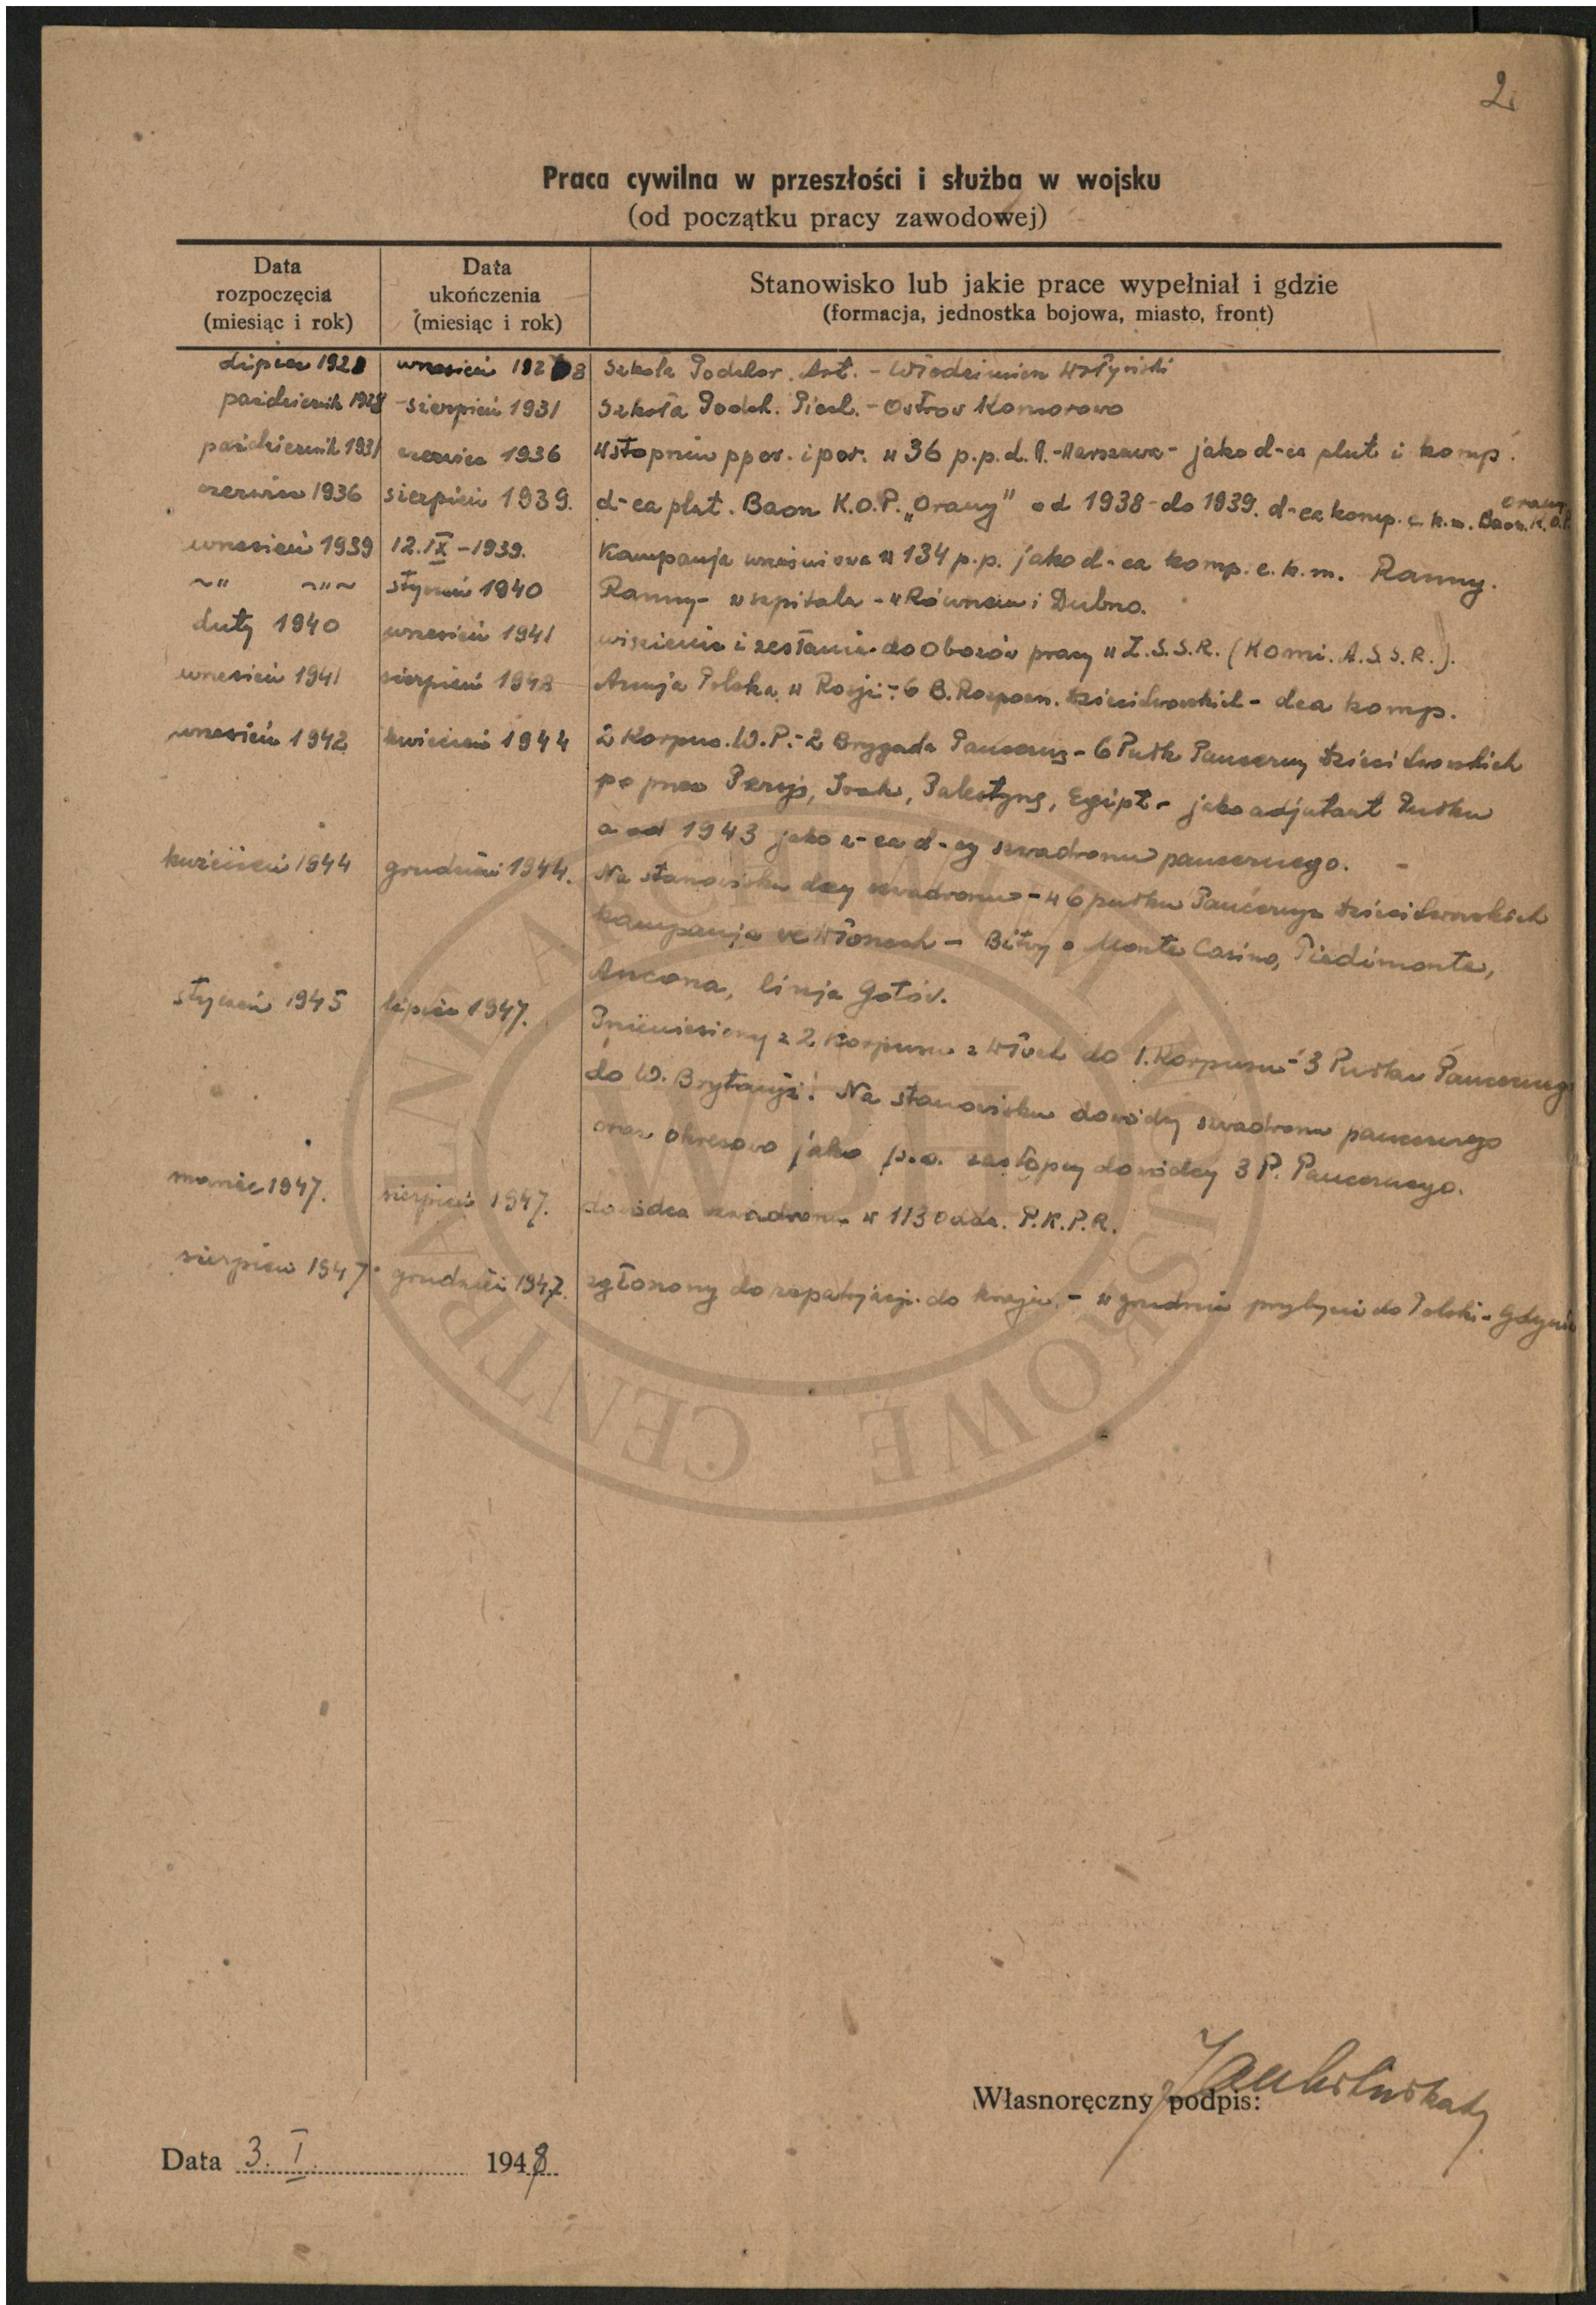 2.
Praca cywilna w przeszłości i służba w wojsku
(od początku pracy zawodowej)
Data rozpoczęcia (miesiąc i rok) Data ukończenia (miesiąc i rok) Stanowisko lub jakie prace wypełniał i gdzie (formacja, jednostka bojowa, miasto, front)
lipiec 1928 wrzesień 1928 Szkoła Podchor. Art. - Włodzimierz Wołyński
październik 1928 - sierpień 1931 Szkoła Podch. Piech. - Ostrów Komorowo
październik 1931 czerwiec 1936 W stopniu ppor. i por. w 36 p.p. d.A. - Warszawa - jako d-ca plut i komp.
czerwiec 1936 sierpień 1939. d-ca plut. Baon K.O.P. „Orany" od 1938 - do 1939. d-ca komp. c.k.m. Baon. K.O.P. Orany
wrzesień 1939 12.IX - 1939. Kampanja wrześniowa w 134 p.p. jako d-ca komp. c.k.m. Ranny.
~" ~"~ styczeń 1940 Ranny - w szpitalu - w Równem i Dubno.
luty 1940 wrzesień 1941 więzienie i zesłanie do obozów pracy w Z.S.S.R. (Komi. A.S.S.R.).
wrzesień 1941 sierpień 1942 Armja Polska w Rosji - 6 B. Rozpozn. Dzieci Lwowskich - dca komp.
wrzesień 1942 kwiecień 1944 2 Korpus. W.P. - 2 Brygada Pancerna - 6 Pułk Pancerny Dzieci Lwowskich
po przez Persję, Irak, Palestynę, Egipt - jako adjutant Pułku
a od 1943 jako z-ca d-cy szwadronu pancernego. -
kwiecień 1944 grudzień 1944. Na stanowisku dcy szwadronu - w 6 pułku Pancernym Dzieci Lwowskich
kampanja we Włoszech - Bitwy o Monte Casino, Piedimonte,
Ancona, linja Gotów.
styczeń 1945 lipiec 1947. Przeniesiony z 2 Korpusu z Włoch do 1. Korpusu - 3 Pułku Pancernego
do W. Brytanji. Na stanowisku dowódcy szwadronu pancernego
oraz okresowo jako p.o. zastępcy dowódcy 3 P. Pancernego.
marzec 1947. sierpień 1947. dowódca szwadronu w 113 oddz. P.K.P.R.
sierpień 1947. grudzień 1947. zgłoszony do repatrjacji do kraju. - w grudniu przybycie do Polski - Gdynia
CENTRALNE ARCHIWUM WOJSKOWE
WBH
Własnoręczny podpis:
Data 3. I. 1948